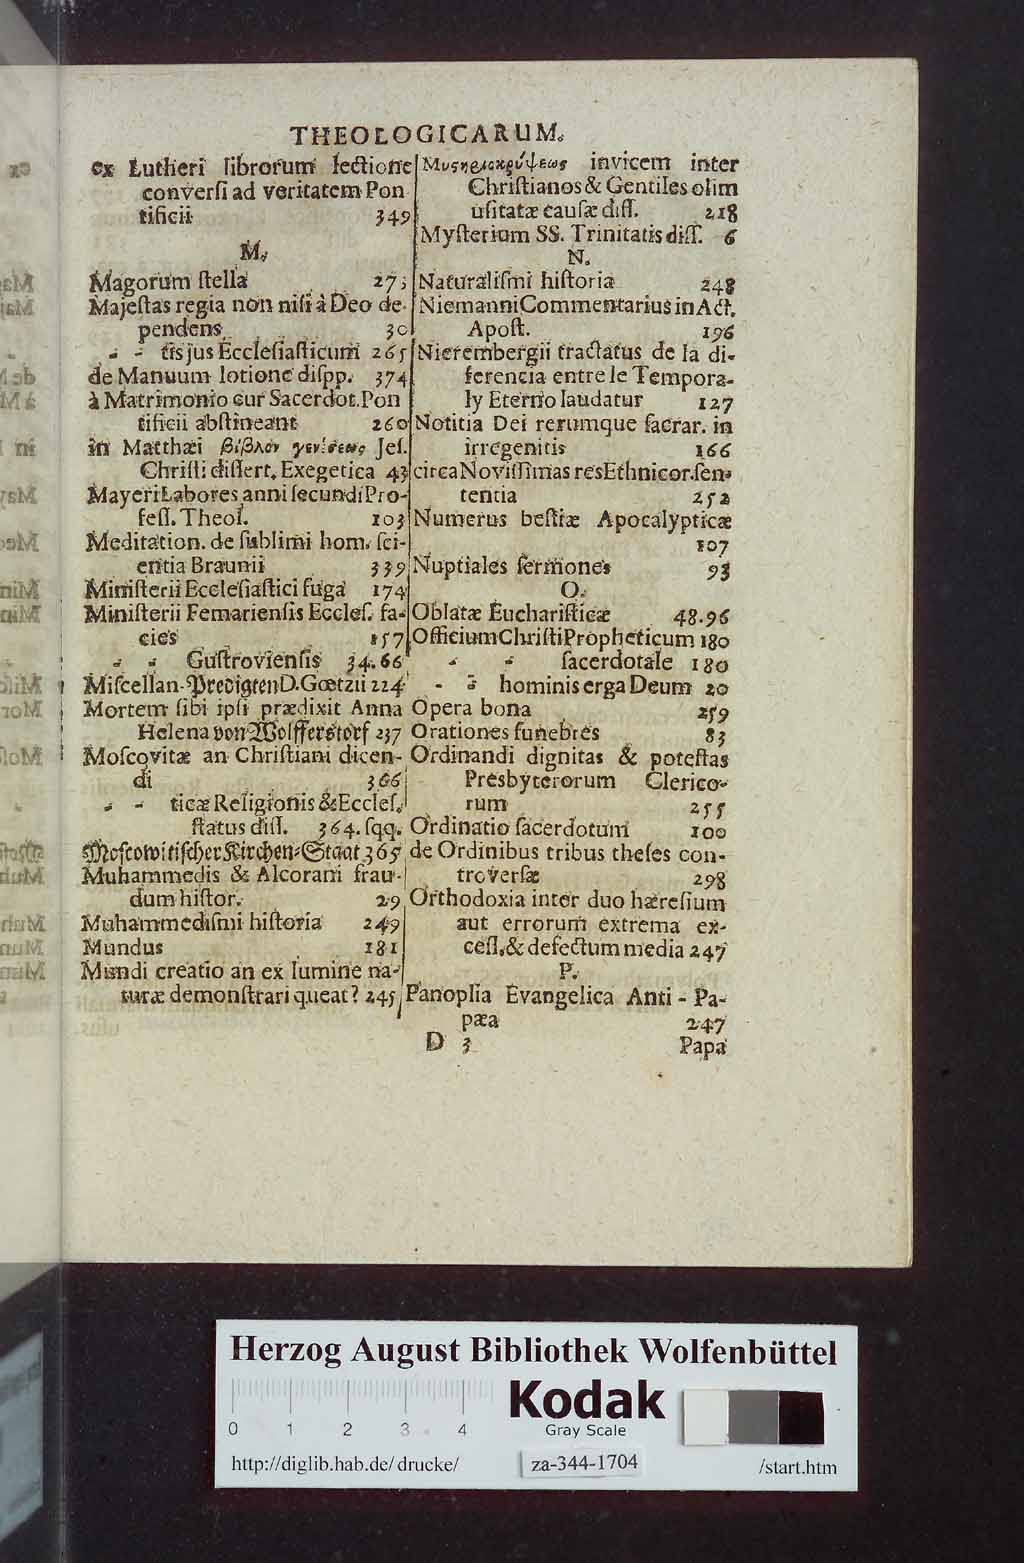 THEOLOGICARUM.
ex Lutheri librorum lectione
conversi ad veritatem Pon
tificii 349
M.
Magorum ſtella 275
Majeſtas regia non niſi à Deo de-
pendens 30
- - tis jus Eccleſiaſticum 265
de Manuum lotione diſpp. 374
à Matrimonio cur Sacerdot. Pon
tificii abſtineant 260
in Matthæi βίβλον γενέσεως Jeſ.
Chriſti diſſert. Exegetica 43
Mayeri Labores anni ſecundi Pro-
feſſ. Theol. 103
Meditation. de ſublimi hom. ſci-
entia Braunii 339
Miniſterii Eccleſiaſtici fuga 174
Miniſterii Femarienſis Eccleſ. fa-
cies 157
- - Guſtrovienſis 34.66
Miſcellan-Predigten D. Gœtzii 224
Mortem ſibi ipſi prædixit Anna
Helena von Wolfferstorf 237
Moſcovitæ an Chriſtiani dicen-
di 366
- - ticæ Religionis & Eccleſ.
ſtatus diſſ. 364. ſqq.
Moſcowitiſcher Kirchen-Staat 365
Muhammedis & Alcorani frau-
dum hiſtor. 29
Muhammediſmi hiſtoria 249
Mundus 181
Mundi creatio an ex lumine na-
turæ demonſtrari queat? 245
Μυϛηριοκρύψεως invicem inter
Chriſtianos & Gentiles olim
uſitatæ cauſæ diſſ. 218
Myſterium SS. Trinitatis diſſ. 6
N.
Naturaliſmi hiſtoria 248
Niemanni Commentarius in Act.
Apoſt. 196
Nierembergii tractatus de la di-
ferencia entre le Tempora-
ly Eterno laudatur 127
Notitia Dei rerumque ſacrar. in
irregenitis 166
circa Noviſſimas res Ethnicor. ſen-
tentia 252
Numerus beſtiæ Apocalypticæ
107
Nuptiales ſermones 93
O.
Oblatæ Euchariſticæ 48.96
Officium Chriſti Propheticum 180
- - ſacerdotale 180
- - hominis erga Deum 20
Opera bona 259
Orationes funebres 83
Ordinandi dignitas & poteſtas
Presbyterorum Clerico-
rum 255
Ordinatio ſacerdotum 100
de Ordinibus tribus theſes con-
troverſæ 298
Orthodoxia inter duo hæreſium
aut errorum extrema ex-
ceſſ. & defectum media 247
P.
Panoplia Evangelica Anti - Pa-
pæa 247
D 3 Papa
Herzog August Bibliothek Wolfenbüttel
0 1 2 3 4
Kodak
Gray Scale
http://diglib.hab.de/drucke/ za-344-1704 /start.htm